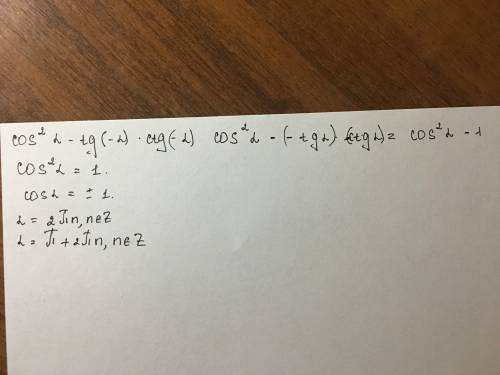 cos² α - tg(-α) · ctg(-α) cos² α - (-tg α)·(-ctg α) = cos² α - 1
cos² α = 1.
cos α = ± 1.
α = 2πn, n∈Z
α = π + 2πn, n∈Z